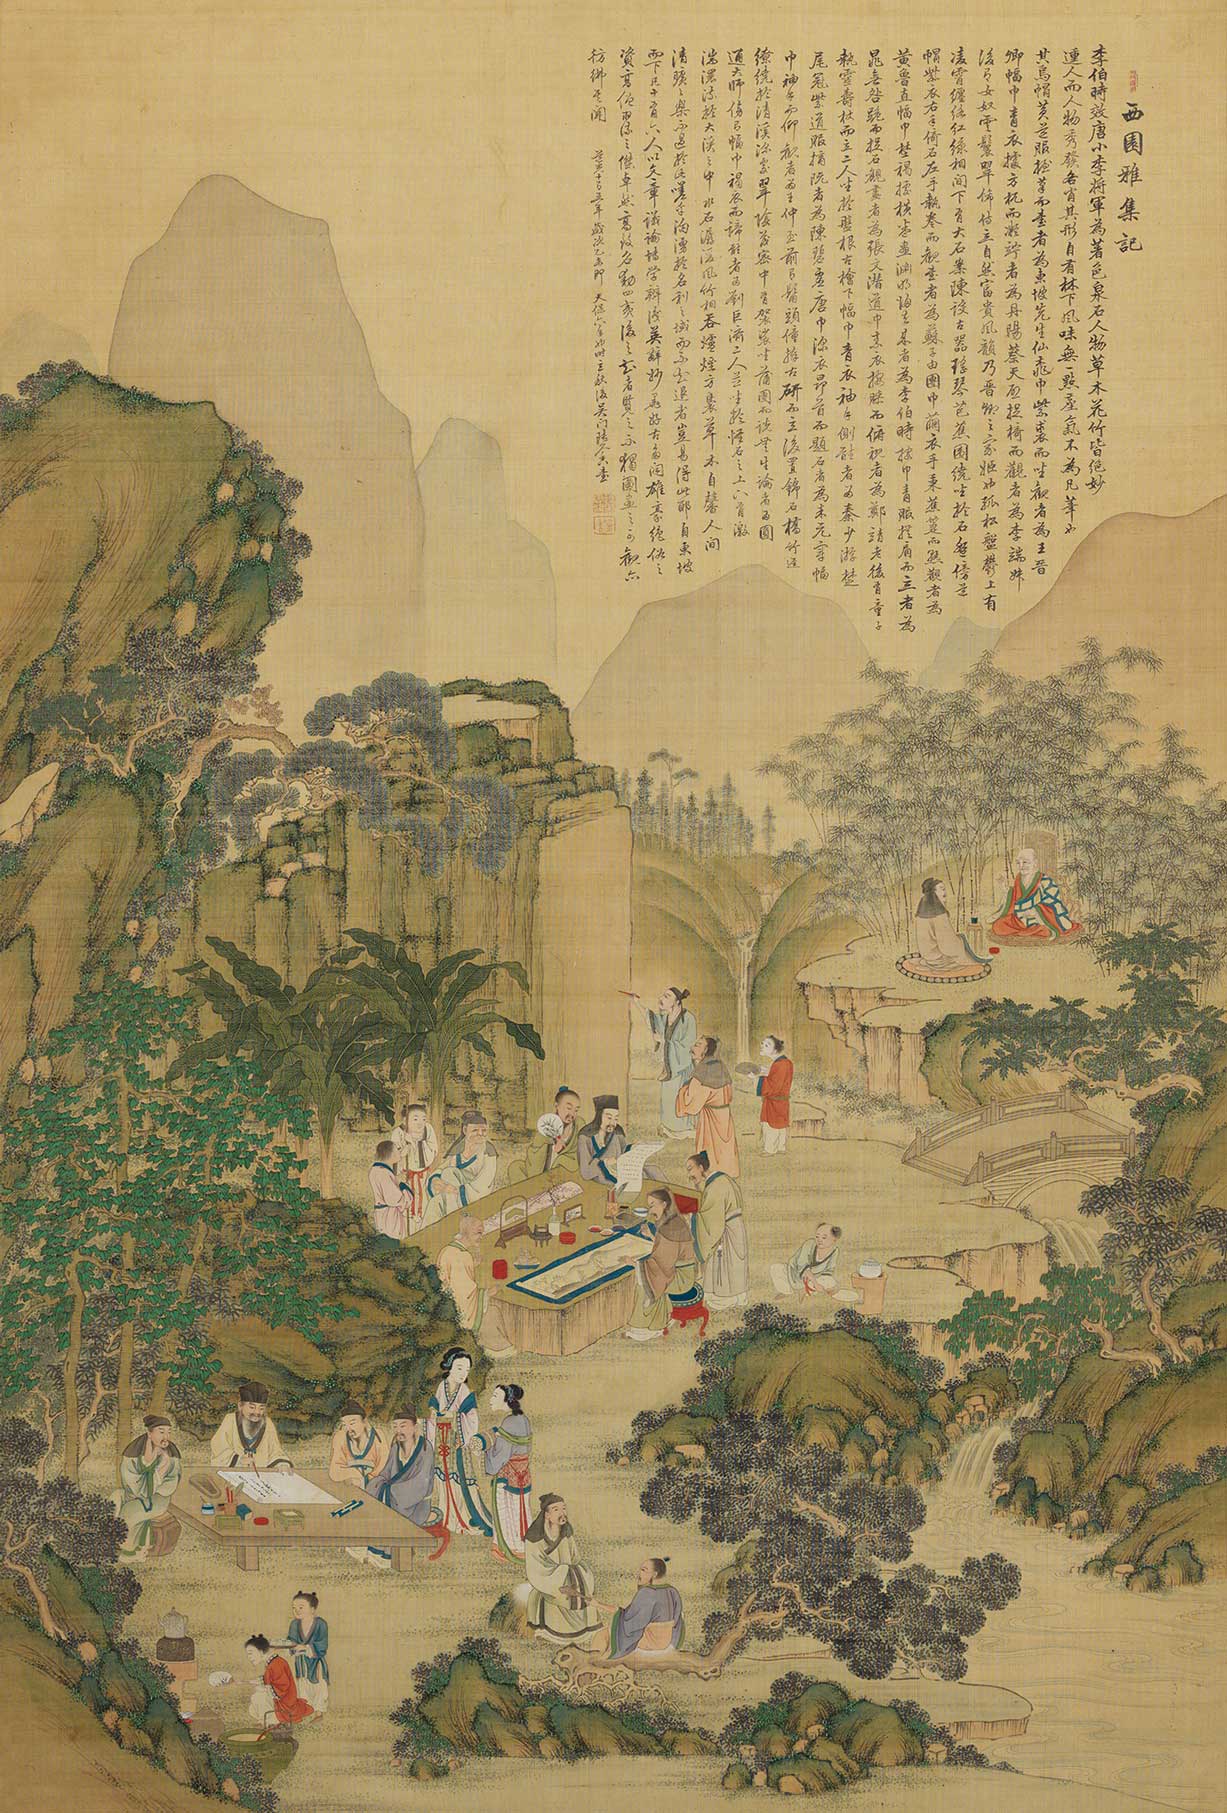 西園雅集記
李伯時效唐小李將軍為著色泉石人物草木花竹皆絕妙
動人而人物秀發各肖其形自有林下風味無一點塵氣不為凡筆也
其烏帽黃道服捉筆而書者為東坡先生仙桃巾紫裘而坐觀者為王晉
卿幅巾青衣據方机而凝竚者為丹陽蔡天啟捉椅而觀者為李端叔
後有女奴雲鬟翠飾侍立自然富貴風韻乃晉卿之家姬也孤松盤鬱上有
凌霄纏絡紅綠相間下有大石案陳設古器瑤琴芭蕉圍繞坐於石盤傍道
帽紫衣右手倚石左手執卷而觀書者為蘇子由團巾繭衣手秉蕉箑而熟觀者為
黃魯直幅巾埜褐據橫卷畫淵明歸去來者為李伯時披巾青服撫肩而立者為
晁無咎跪而捉石觀畫者為張文潛道巾素衣按膝而俯視者為鄭靖老後有童子
執靈壽杖而立二人坐於盤根古檜下幅巾青衣袖手側聽者為秦少游琴
尾冠紫道服摘阮者為陳碧虛唐巾深衣昂首而題石者為米元章幅
巾袖手而仰觀者為王仲至前有鬅頭僮捧古研而立後有錦石橋竹逕
繚繞於清溪深處翠陰茂密中有袈裟坐蒲團而說無生論者為圓
通大師傍有幅巾褐衣而諦聽者為劉巨濟二人並坐於怪石之上下有激
湍潨流於大溪之中水石潺湲風竹相吞爐煙方裊草木自馨人間
清曠之樂不過於此嗟乎洶湧於名利之域而不知退者豈易得此耶自東坡
而下凡十有六人以文章議論博學辨識英辭妙墨好古多聞雄豪絕俗之
資高僧羽流之傑卓然高致名動四夷後之覽者不獨圖畫之可觀亦
彷彿其 道光十五年歲次乙未即天保六年也時立秋後吳門張 書